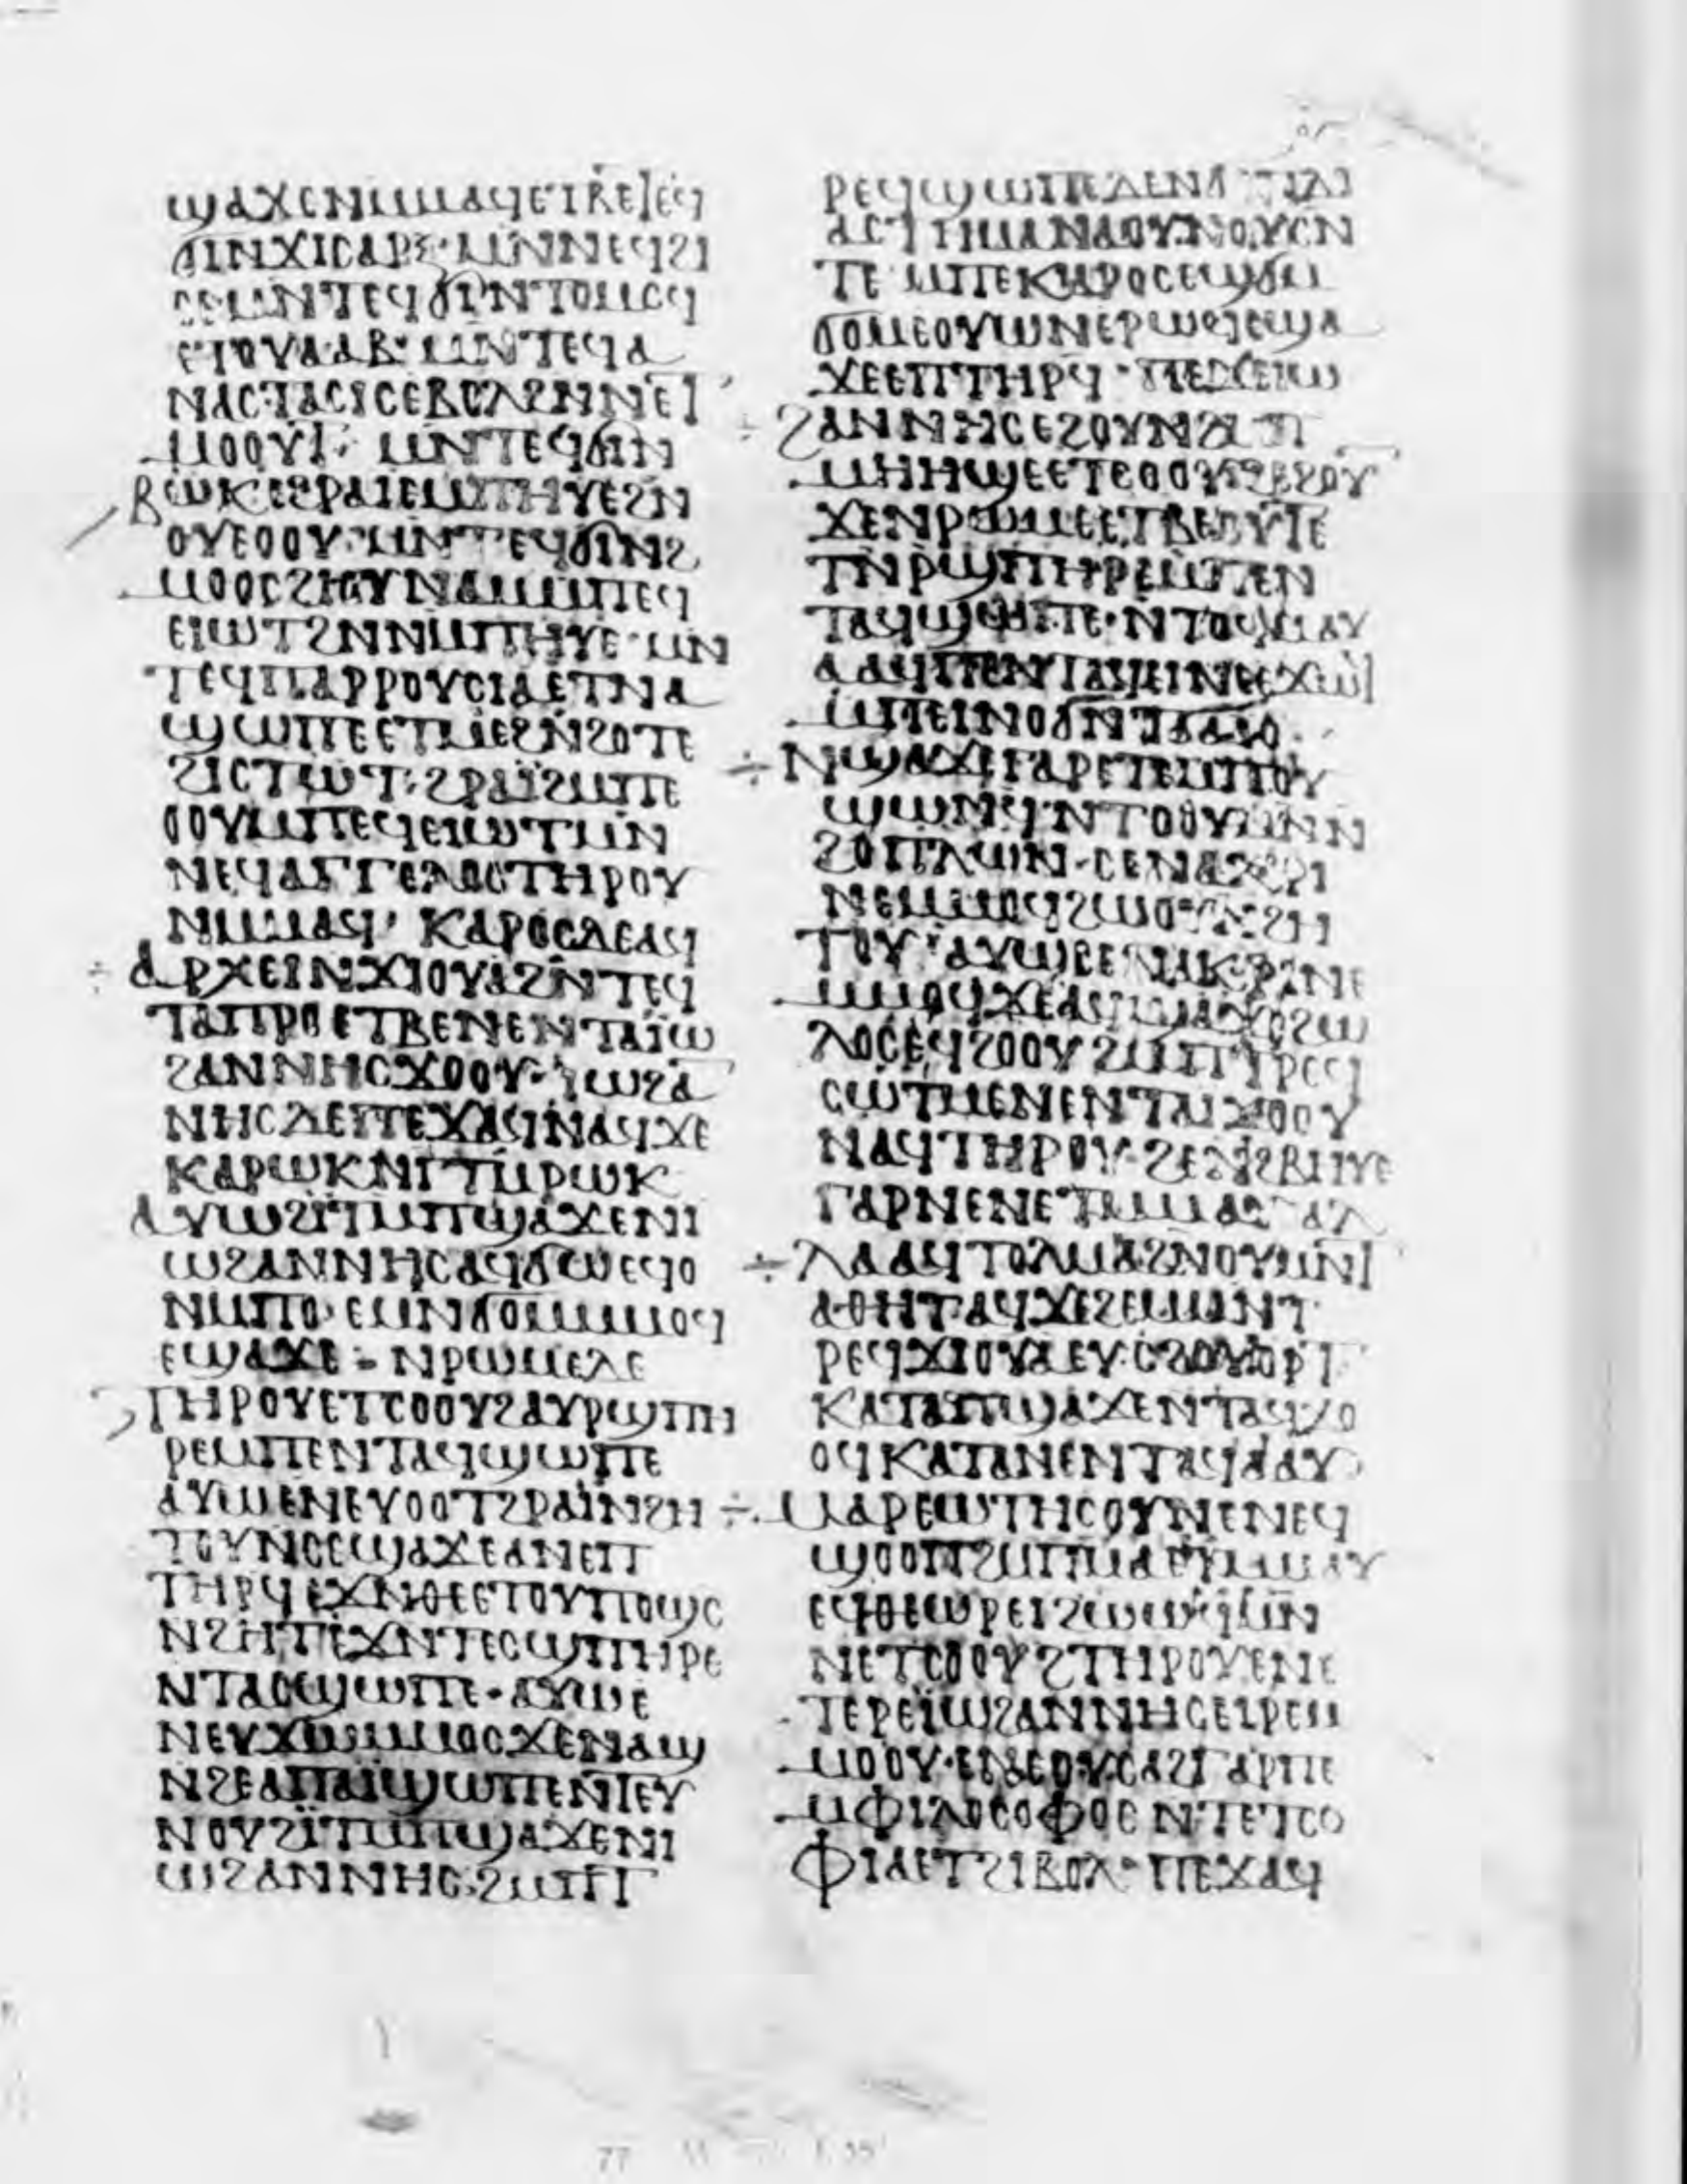 ϣⲁϫⲉⲛⲙⲙⲁϥⲉⲧⲃⲉⲧⲉϥ
ϭⲓⲛϫⲓⲥⲁⲣⲝ· ⲙⲛⲛⲉϥϩⲓ
ⲥⲉⲙⲛⲧⲉϥϭⲓⲛⲧⲟⲙⲥϥ
ⲉⲧⲟⲩⲁⲁⲃ· ⲙⲛⲧⲉϥⲁ
ⲛⲁⲥⲧⲁⲥⲓⲥⲉⲃⲟⲗϩⲛⲛⲉⲧ
ⲙⲟⲟⲩⲧ· ⲙⲛⲧⲉϥϭⲓⲛ
ⲃⲱⲕⲉϩⲣⲁⲓⲉⲙⲡⲏⲩⲉϩⲛ
ⲟⲩⲉⲟⲟⲩ· ⲙⲛⲧⲉϥϭⲓⲛϩ
ⲙⲟⲟⲥϩⲓⲟⲩⲛⲁⲙⲙⲡⲉϥ
ⲉⲓⲱⲧϩⲛⲛⲙⲡⲏⲩⲉ· ⲙⲛ
ⲧⲉϥⲡⲁⲣⲣⲟⲩⲥⲓⲁⲉⲧⲛⲁ
ϣⲱⲡⲉⲉⲧⲙⲉϩⲛϩⲟⲧⲉ
ϩⲓⲥⲧⲱⲧ· ϩⲣⲁⲓϩⲙⲡⲉ
ⲟⲟⲩⲙⲡⲉϥⲉⲓⲱⲧⲙⲛ
ⲛⲉϥⲁⲅⲅⲉⲗⲟⲥⲧⲏⲣⲟⲩ
ⲛⲙⲙⲁϥ· ⲕⲁⲣⲟⲥⲇⲉⲁϥ
ⲁⲣⲭⲉⲓⲛϫⲓⲟⲩⲁϩⲛⲧⲉϥ
ⲧⲁⲡⲣⲟⲉⲧⲃⲉⲛⲉⲛⲧⲁⲓⲱ
ϩⲁⲛⲛⲏⲥϫⲟⲟⲩ· ⲓⲱϩⲁ
ⲛⲏⲥⲇⲉⲡⲉϫⲁϥⲛⲁϥϫⲉ
ⲕⲁⲣⲱⲕⲛⲅⲧⲙⲣⲱⲕ
ⲁⲩⲱϩⲓⲧⲙⲡϣⲁϫⲉⲛⲓ
ⲱϩⲁⲛⲛⲏⲥⲁϥϭⲱⲉϥⲟ
ⲛⲙⲡⲟ· ⲉⲙⲛϭⲟⲙⲙⲙⲟϥ
ⲉϣⲁϫⲉ· ⲛⲣⲱⲙⲉⲇⲉ
ⲧⲏⲣⲟⲩⲉⲧⲥⲟⲟⲩϩⲁⲩⲣϣⲡⲏ
ⲣⲉⲙⲡⲉⲛⲧⲁϥϣⲱⲡⲉ
ⲁⲩⲱⲉⲛⲉⲩⲟⲟⲧϩⲣⲁⲓⲛϩⲏ
ⲧⲟⲩⲛϭⲉϣⲁϫⲉⲁⲛⲉⲡ
ⲧⲏⲣϥⲉϫⲛⲑⲉⲉⲧⲟⲩⲡⲟϣⲥ
ⲛϩⲏⲧⲉϫⲛⲧⲉϣⲡⲏⲣⲉ
ⲛⲧⲁⲥϣⲱⲡⲉ· ⲁⲩⲱⲉ
ⲛⲉⲩϫⲱⲙⲙⲟⲥϫⲉⲛⲁϣ
ⲛϩⲉⲁⲡⲁⲓϣⲱⲡⲉⲛⲧⲉⲩ
ⲛⲟⲩϩⲓⲧⲙⲡϣⲁϫⲉⲛⲓ
ⲱϩⲁⲛⲛⲏⲥ· ϩⲙⲡⲧⲣ
ⲣⲉϥϣⲱⲡⲉⲇⲉⲛ
ⲧⲉ ⲙⲡⲉⲕⲁⲣⲟⲥⲉϣϭⲙ
ϭⲟⲙⲉⲟⲩⲱⲛⲉⲣⲱϥⲉϣⲁ
ϫⲉⲉⲡⲧⲏⲣϥ· ⲡⲉϫⲉⲓⲱ
ϩⲁⲛⲛⲏⲥⲉϩⲟⲩⲛϩⲙⲡ
ⲙⲏⲏϣⲉⲉⲧⲥⲟⲟⲩϩⲉϩⲟⲩ
ϫⲉⲛⲣⲱⲙⲉⲉⲧⲃⲉⲟⲩⲧⲉ
ⲧⲛⲣϣⲡⲏⲣⲉⲙⲡⲉⲛ
ⲧⲁϥϣⲱⲡⲉ· ⲛⲧⲟϥⲙⲁⲩ
ⲁⲁϥⲡⲉⲛⲧⲁϥⲉⲓⲛⲉⲉϫⲱϥ
ⲙⲡⲉⲓⲛⲟϭⲛⲧⲃⲁⲓⲟ
ⲛϣⲁϫⲉⲅⲁⲣⲉⲧⲉⲙⲡⲟⲩ
ϣⲱⲛϥⲛⲧⲟⲟⲩⲙⲛⲛ
ϩⲟⲡⲗⲱⲛ· ⲥⲉⲛⲁϫⲣⲓ
ⲧⲟⲩ· ⲁⲩⲱⲥⲉⲛⲁⲕⲣⲓⲛⲉ
ⲙⲙⲟϥϫⲉⲁϥϣⲁϫⲟϩⲱ
ⲗⲟⲥⲉϥϩⲟⲟⲩϩⲙⲡⲧⲣⲉϥ
ⲥⲱⲧⲙⲉⲛⲉⲛⲧⲁⲓϫⲟⲟⲩ
ⲛⲁϥⲧⲏⲣⲟⲩ· ϩⲉⲛϩⲃⲏⲩⲉ
ⲅⲁⲣⲛⲉⲛⲉⲧⲙⲙⲁϥ
ⲗⲁⲁϥⲧⲟⲗⲙⲁϩⲛⲟⲩⲙⲛⲧ
ⲁⲑⲏⲧ· ⲁϥϫⲉϩⲉⲛⲙⲛⲧ
ⲣⲉϥϫⲓⲟⲩⲁⲉⲩⲥϩⲟⲩⲟⲣⲧ
ⲕⲁⲧⲁⲡϣⲁϫⲉⲛⲧⲁϥϫⲟ
ⲟϥⲕⲁⲧⲁⲛⲉⲛⲧⲁϥⲁⲁⲩ
ⲙⲁⲣⲉⲱⲧⲏⲥⲟⲩⲛⲉⲛⲉϥ
ϣⲟⲟⲡϩⲙⲡⲙⲁⲉⲧⲙⲙⲁⲩ
ⲉϥⲑⲉⲱⲣⲉⲓϩⲱⲱϥⲙⲛ
ⲛⲉⲧⲥⲟⲟⲩϩⲧⲏⲣⲟⲩⲉⲛⲉ
ⲧⲉⲣⲉⲓⲱϩⲁⲛⲛⲏⲥⲉⲓⲣⲉⲙ
ⲙⲟⲟⲩ· ⲉⲛⲉⲟⲩⲥⲁϩⲅⲁⲣⲡⲉ
ⲙⲫⲓⲗⲟⲥⲟⲫⲟⲥ ⲛⲧⲉⲧⲥⲟ
ⲫⲓⲁⲉⲧϩⲓⲃⲟⲗ· ⲡⲉϫⲁϥ